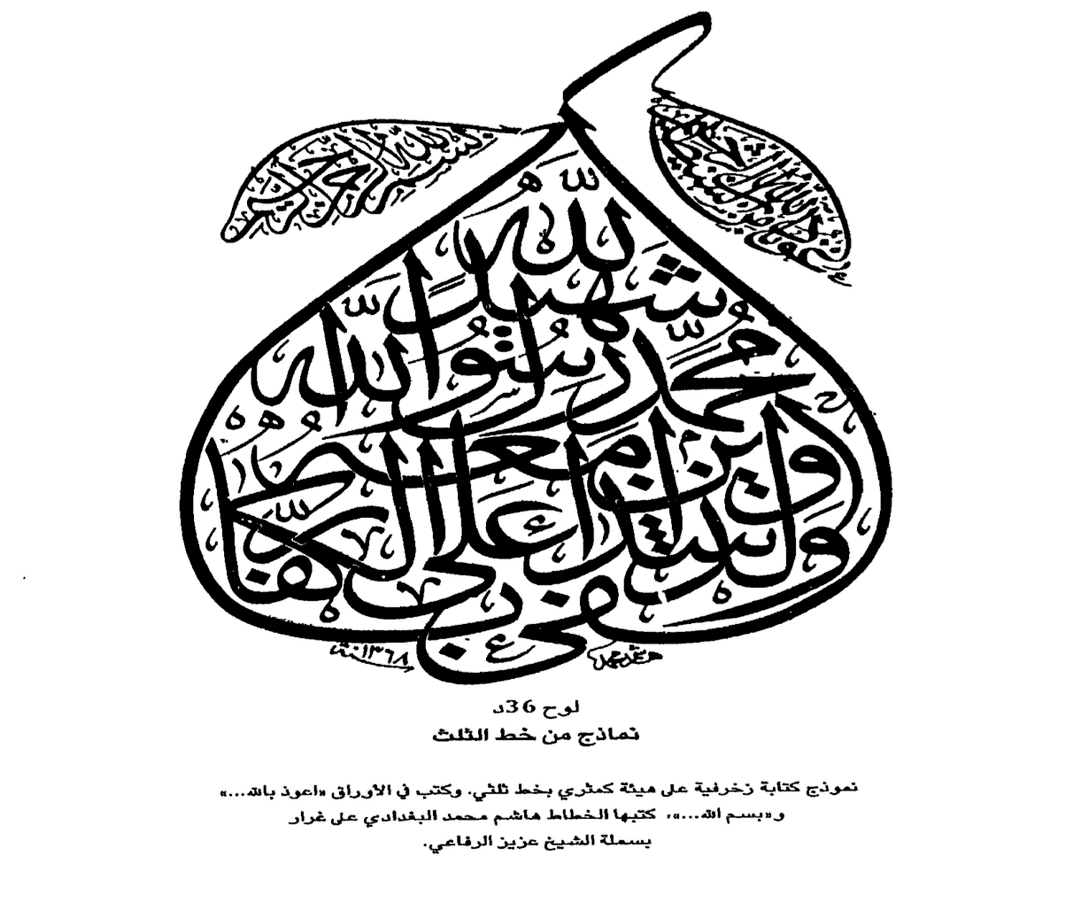 أعوذ بالله من الشيطان الرجيم
بسم الله الرحمن الرحيم
وكفى بالله شهيدا
محمد رسول الله
والذين معه
اشداء على الكفار
هاشم محمد
سنة ١٣٦٨
لوح 36د
نماذج من خط الثلث
نموذج كتابة زخرفية على هيئة كمثري بخط ثلثي. وكتب في الأوراق «اعوذ بالله...»
و«بسم الله...»، كتبها الخطاط هاشم محمد البغدادي على غرار
بسملة الشيخ عزيز الرفاعي.